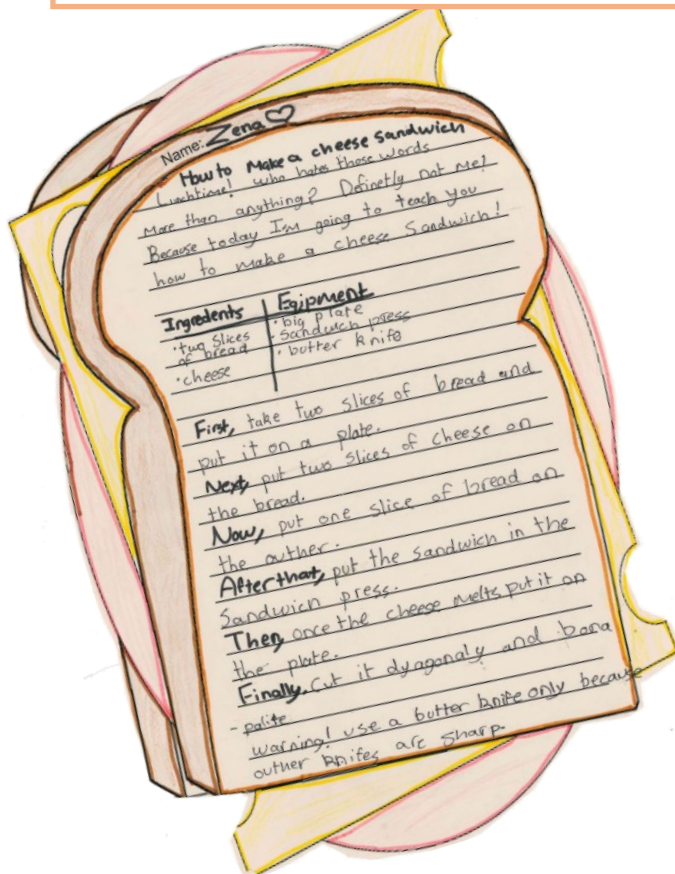 Name: Zena♡
How to Make a cheese sandwich
Lunchtime! who hates those words
More than anything? Definetly not me!
Because today I'm going to teach you
how to make a cheese Sandwich!
Ingredents
• two slices
of bread
• cheese
Egipment
• big plate
• Sandwich press
• butter knife
First, take two slices of bread and
put it on a plate.
Next, put two slices of cheese on
the bread.
Now, put one slice of bread on
the outher.
After that, put the sandwich in the
Sandwich press.
Then, once the cheese melts put it on
the plate.
Finally. Cut it dyagonaly and bona
- patite
warning! use a butter knife only because
outher knifes are sharp.